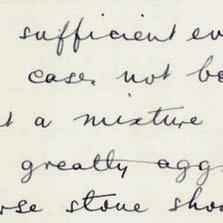 sufficient ev
case. not be
t a mixture
greatly agg
rse stone sho